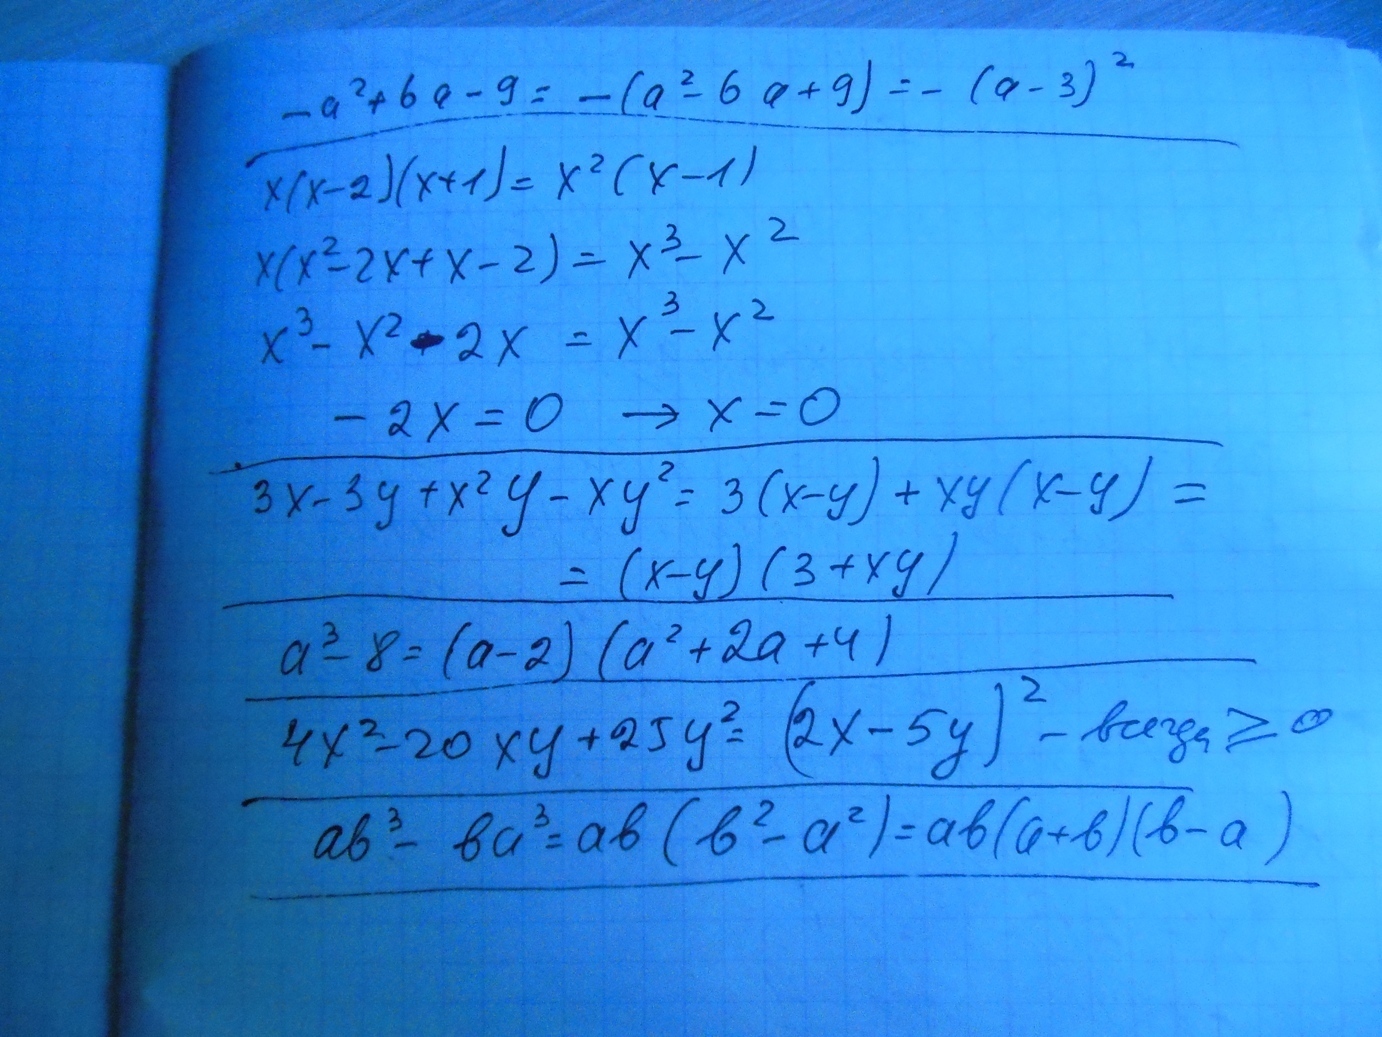 -a²+6a-9=-(a²-6a+9)=-(a-3)²
x(x-2)(x+1)=x²(x-1)
x(x²-2x+x-2)=x³-x²
x³-x²-2x=x³-x²
-2x=0 → x=0
3x-3y+x²y-xy²=3(x-y)+xy(x-y)=
=(x-y)(3+xy)
a³-8=(a-2)(a²+2a+4)
4x²-20xy+25y²=(2x-5y)² - всегда ≥0
ab³-ba³=ab(b²-a²)=ab(a+b)(b-a)